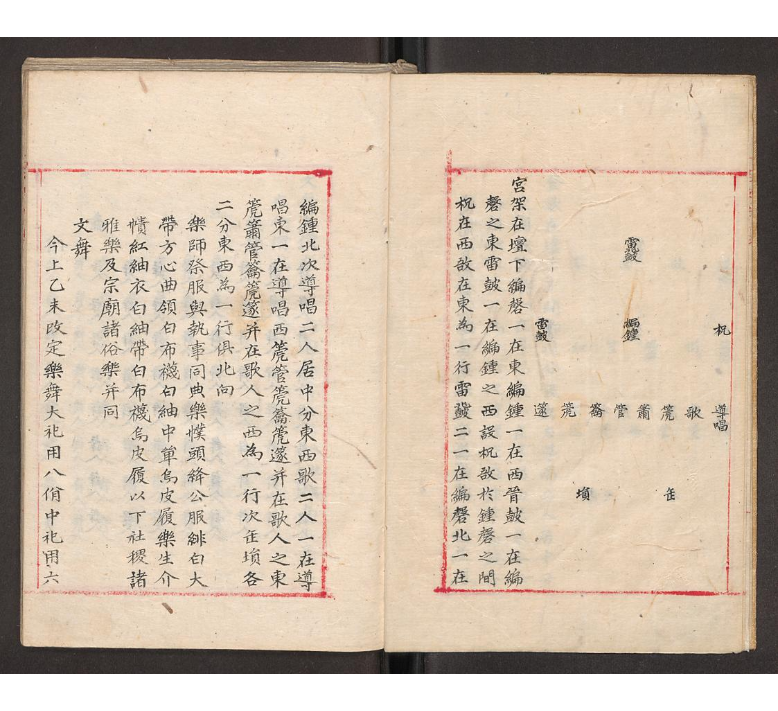 柷
導唱
歌
雷鼓
編鍾
篪
缶
簫
管
籥
塤
篪
篴
雷鼓
宮架在壇下編磬一在東編鍾一在西晉鼓一在編
磬之東雷鼓一在編鍾之西設柷敔於鍾磬之間
柷在西敔在東為一行雷鼓二一在編磬北一在
編鍾北次導唱二人居中分東西歌二人一在導
唱東一在導唱西篪管篪籥篪篴并在歌人之東
篪簫管籥篪篴并在歌人之西為一行次缶塤各
二分東西為一行俱北向
樂師祭服與執事同典樂幞頭絳公服緋白大
帶方心曲領白布襪白紬中單烏皮履樂生介
幘紅紬衣白紬帶白布襪烏皮履以下社稷諸
雅樂及宗廟諸俗樂并同
文舞
今上乙未改定樂舞大祀用八佾中祀用六